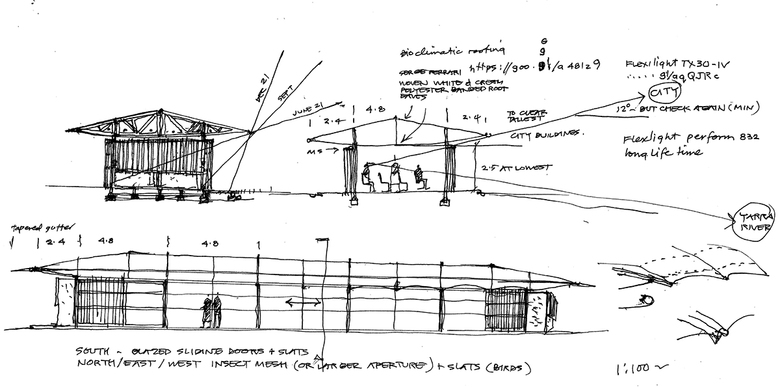 Bioclimatic roofing
https://goo.gl/a48129
SERGE FERRARI
WOVEN WHITE & CREAM
POLYESTER BANDED ROOF
EAVES
Flexilight TX30-IV
CITY
12° - BUT CHECK AGAIN (MIN)
Flexlight perform 832
long life time
DEC 21
SEPT
JUNE 21
2.4
4.8
2.4
TO CLEAR
TALLEST
CITY BUILDINGS.
MS →
2.5 AT LOWEST
YARRA
RIVER
tapered gutter
2.4
4.8
4.8
SOUTH ~ GLAZED SLIDING DOORS + SLATS
NORTH/EAST/WEST INSECT MESH (OR LARGER APERTURE) + SLATS (BIRDS)
1:100 ~